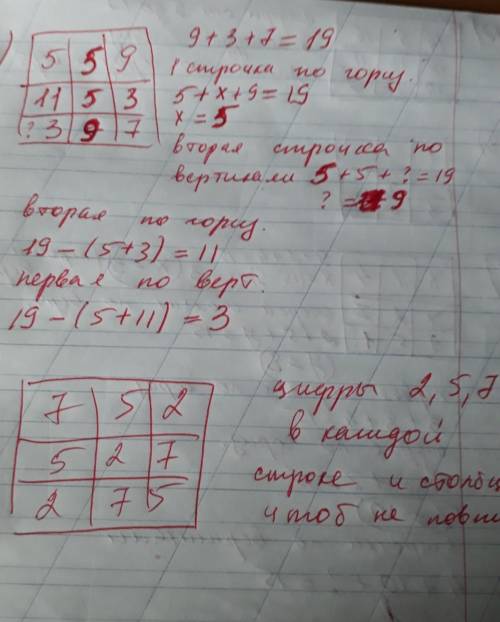 )
5 5 9
11 5 3
? 3 9 7
9+3+7=19
1 строчка по гориз.
5+x+9=19
x=5
вторая строчка по
вертикали 5+5+?=19
?=9
вторая по гориз.
19-(5+3)=11
первая по верт.
19-(5+11)=3
7 5 2
5 2 7
2 7 5
цифры 2, 5, 7
в каждой
строке и столбц
чтоб не повт